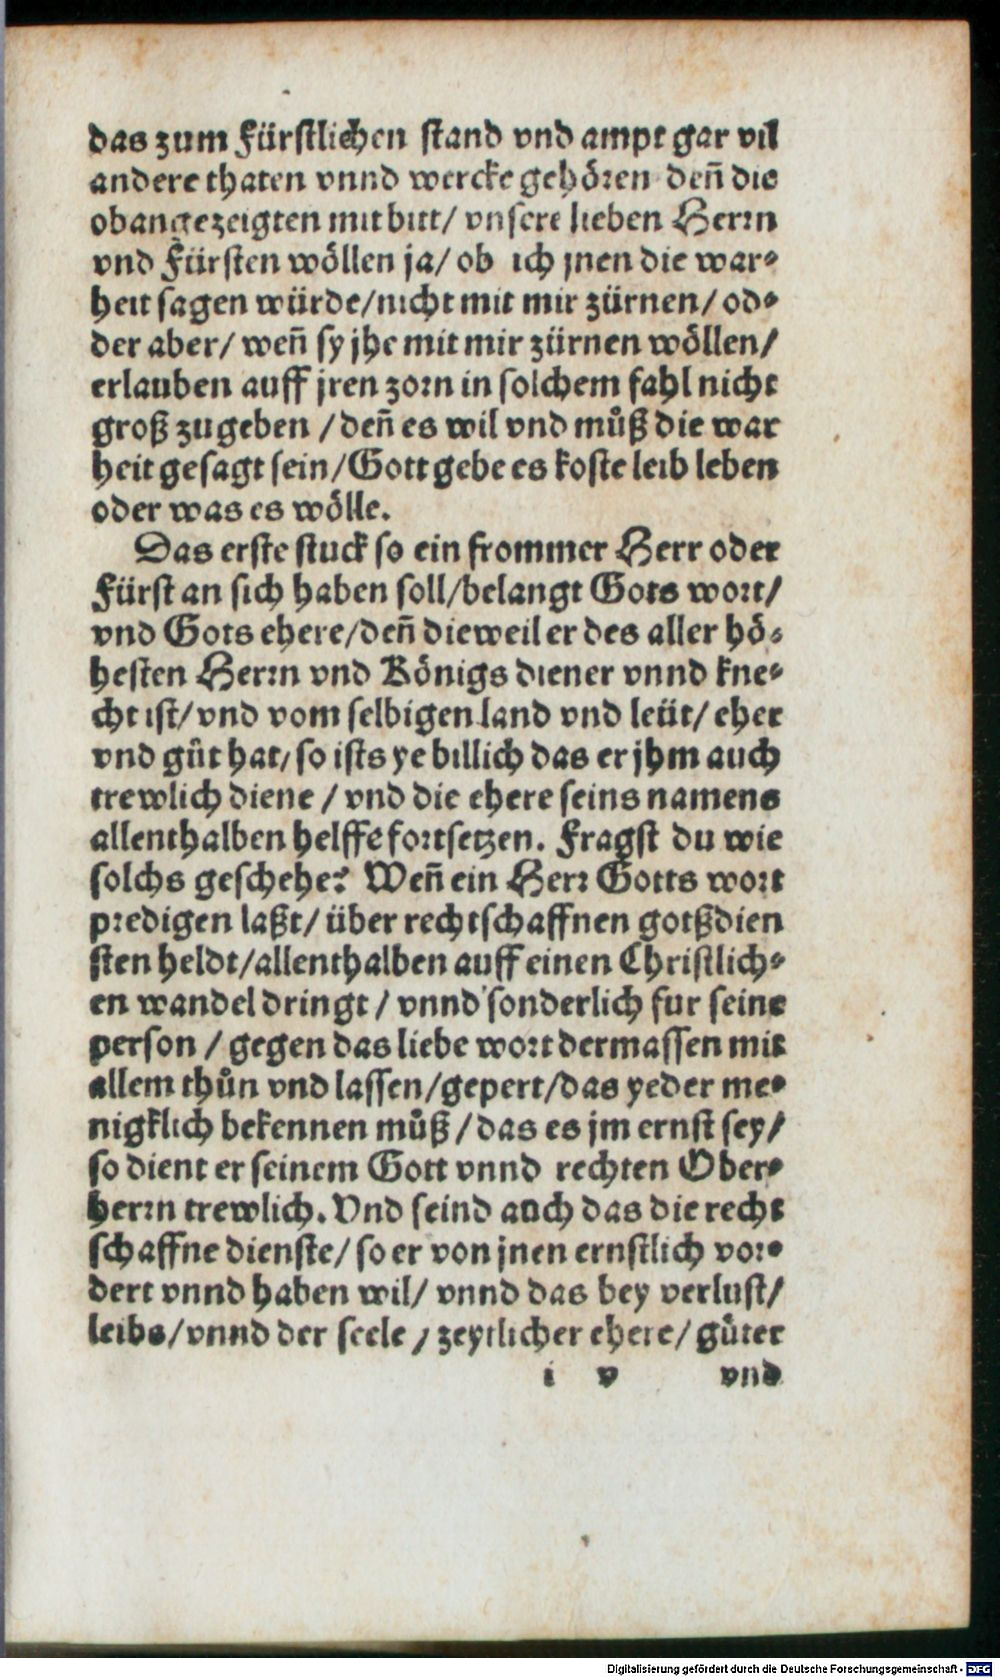 das zum Fürstlichen stand vnd ampt gar vil
andere thaten vnnd wercke gehören denn̄ die
obangezeigten mit bitt/ vnsere lieben Herrn
vnd Fürsten wöllen ja/ ob ich jnen die war-
heit sagen würde/nicht mit mir zürnen/ od-
der aber/ wen̄ sy jhe mit mir zürnen wöllen/
erlauben auff jren zorn in solchem fahl nicht
groß zugeben /den̄ es wil vnd muͤß die war
heit gesagt sein/Gott gebe es koste leib leben
oder was es wölle.
Das erste stuck so ein frommer Herr oder
Fürst an sich haben soll/belangt Gots wort/
vnd Gots ehere/den̄ dieweil er des aller hö-
hesten Herrn vnd Königs diener vnnd kne-
cht ist/ vnd vom selbigen land vnd leüt/ eher
vnd guͤt hat/ so ists ye billich das er jhm auch
trewlich diene / vnd die ehere seins namens
allenthalben helffe fortsetzen. Fragst du wie
solchs geschehe? Wen̄ ein Herr Gotts wort
predigen laßt/ über rechtschaffnen gotßdien
sten heldt/allenthalben auff einen Christlich-
en wandel dringt / vnnd sonderlich fur seine
person / gegen das liebe wort dermassen mit
allem thuͦn vnd lassen/gepert/das yeder me-
nigklich bekennen muͦß/das es jm ernst sey/
so dient er seinem Gott vnnd rechten Ober-
herrn trewlich. Vnd seind auch das die recht
schaffne dienste/ so er von jnen ernstlich vor-
dert vnnd haben wil/ vnnd das bey verlust/
leibs/vnnd der seele / zeytlicher ehere/ guͤter
i v vnd
Digitalisierung gefördert durch die Deutsche Forschungsgemeinschaft - DFG